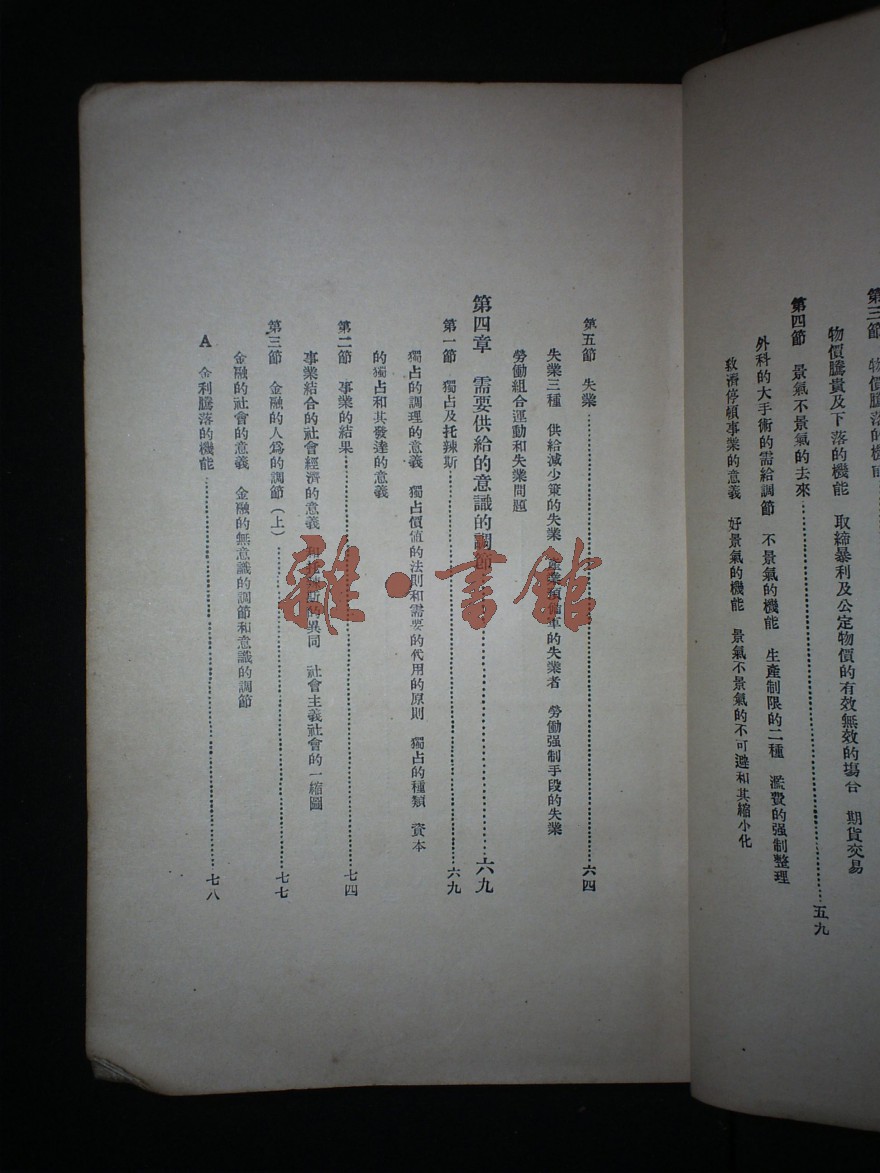 物價騰貴及下落的機能　取締暴利及公定物價的有效無效的場合　期貨交易
第四節　景氣不景氣的去來…………五九
外科的大手術的需給調節　不景氣的機能　生產制限的二種　濫費的强制整理
救濟停頓事業的意義　好景氣的機能　景氣不景氣的不可避和其縮小化
第五節　失業…………六四
失業三種　供給減少策的失業　產業預備軍的失業者　勞働强制手段的失業
勞働組合運動和失業問題
第四章　需要供給的意識的調節…………六九
第一節　獨占及托辣斯…………六九
獨占的調理的意義　獨占價値的法則和需要的代用的原則　獨占的種類　資本
的獨占和其發達的意義
第二節　事業的結果…………七四
事業結合的社會經濟的意義　的異同　社會主義社會的一縮圖
第三節　金融的人爲的調節（上）…………七七
金融的社會的意義　金融的無意識的調節和意識的調節
A　金利騰落的機能…………七八
雜·書館